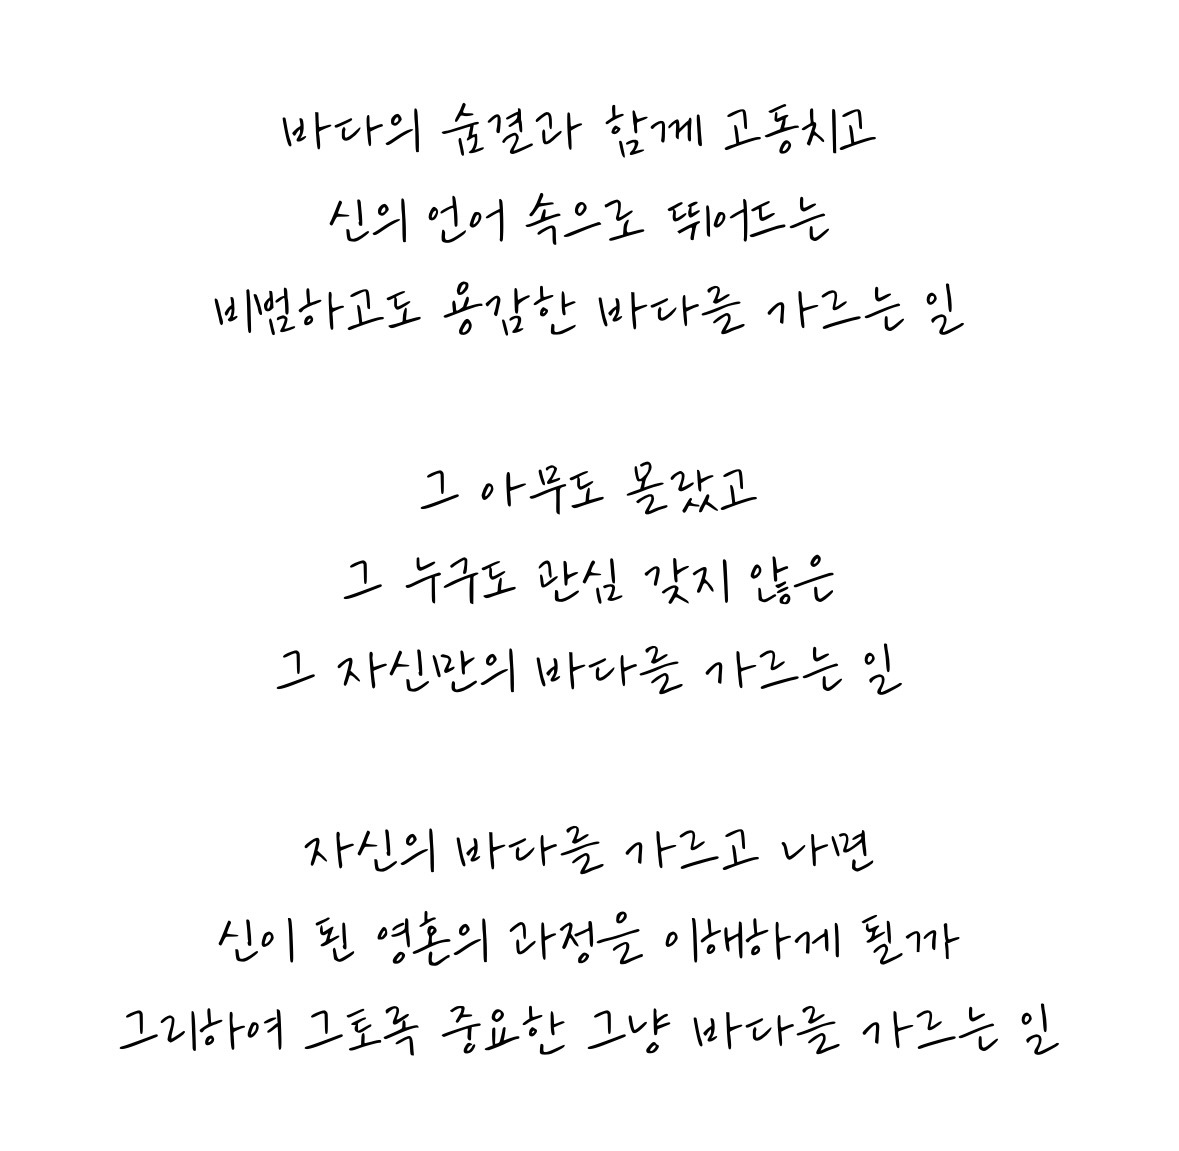 바다의 숨결과 함께 고동치고
신의 언어 속으로 뛰어드는
비범하고도 용감한 바다를 가르는 일
그 아무도 몰랐고
그 누구도 관심 갖지 않은
그 자신만의 바다를 가르는 일
자신의 바다를 가르고 나면
신이 된 영혼의 과정을 이해하게 될까
그리하여 그토록 중요한 그냥 바다를 가르는 일